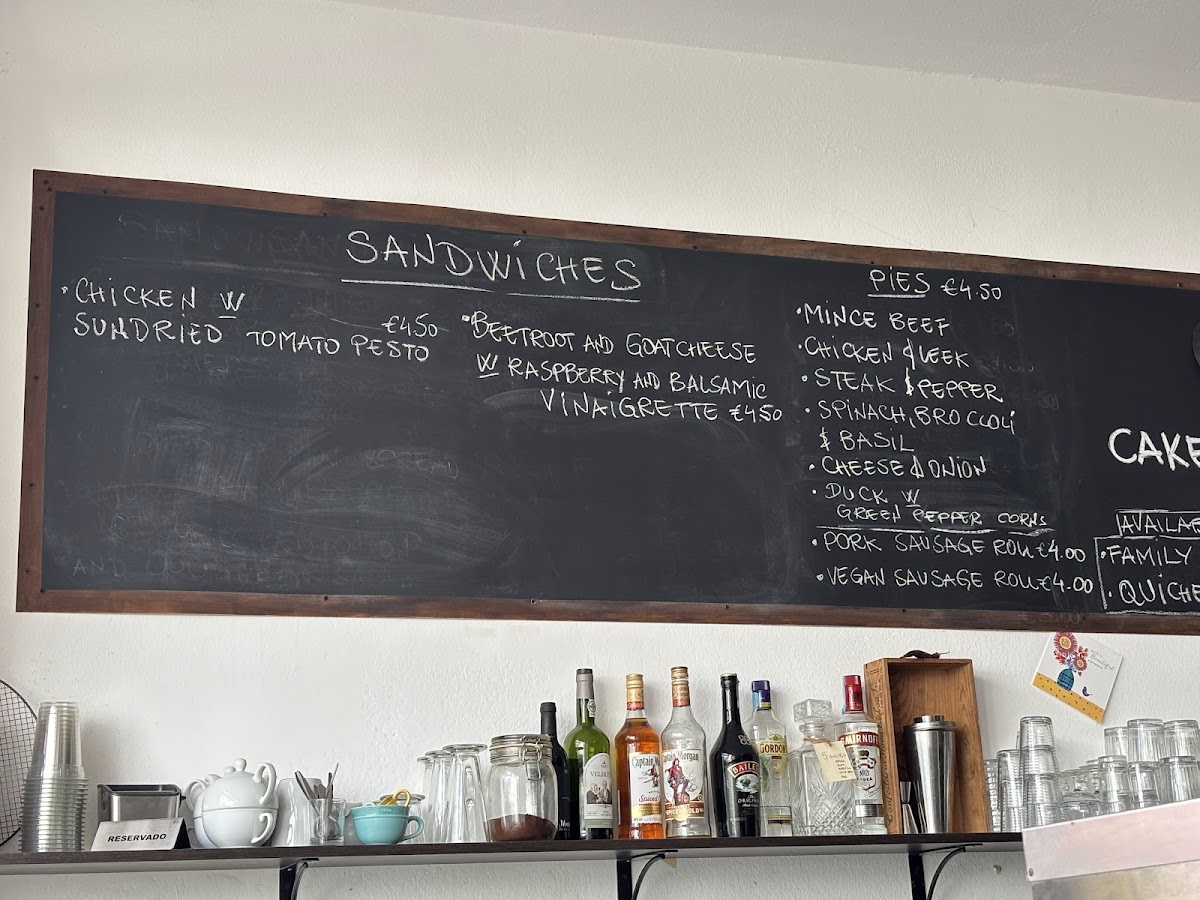 SANDWiCHES
• CHiCKEN W
SUNDRIED TOMATO PESTO €4.50
• BEETROOT AND GOATCHEESE
W RASPBERRY AND BALSAMIC
VINAiGRETTE €4.50
PiES €4.50
• MINCE BEEF
• CHiCKEN & LEEK
• STEAK & PEPPER
• SPINACH, BROCCOLi
& BASIL
• CHEESE & ONION
• DUCK W
GREEN PEPPER CORNS
• PORK SAUSAGE ROLL €4.00
• VEGAN SAUSAGE ROLL €4.00
CAKE
AVAILA
• FAMILY
• QUiCHE
RESERVADO
Captain
Spiced
Morgan
BAILEYS
GORDON
SMIRNOFF